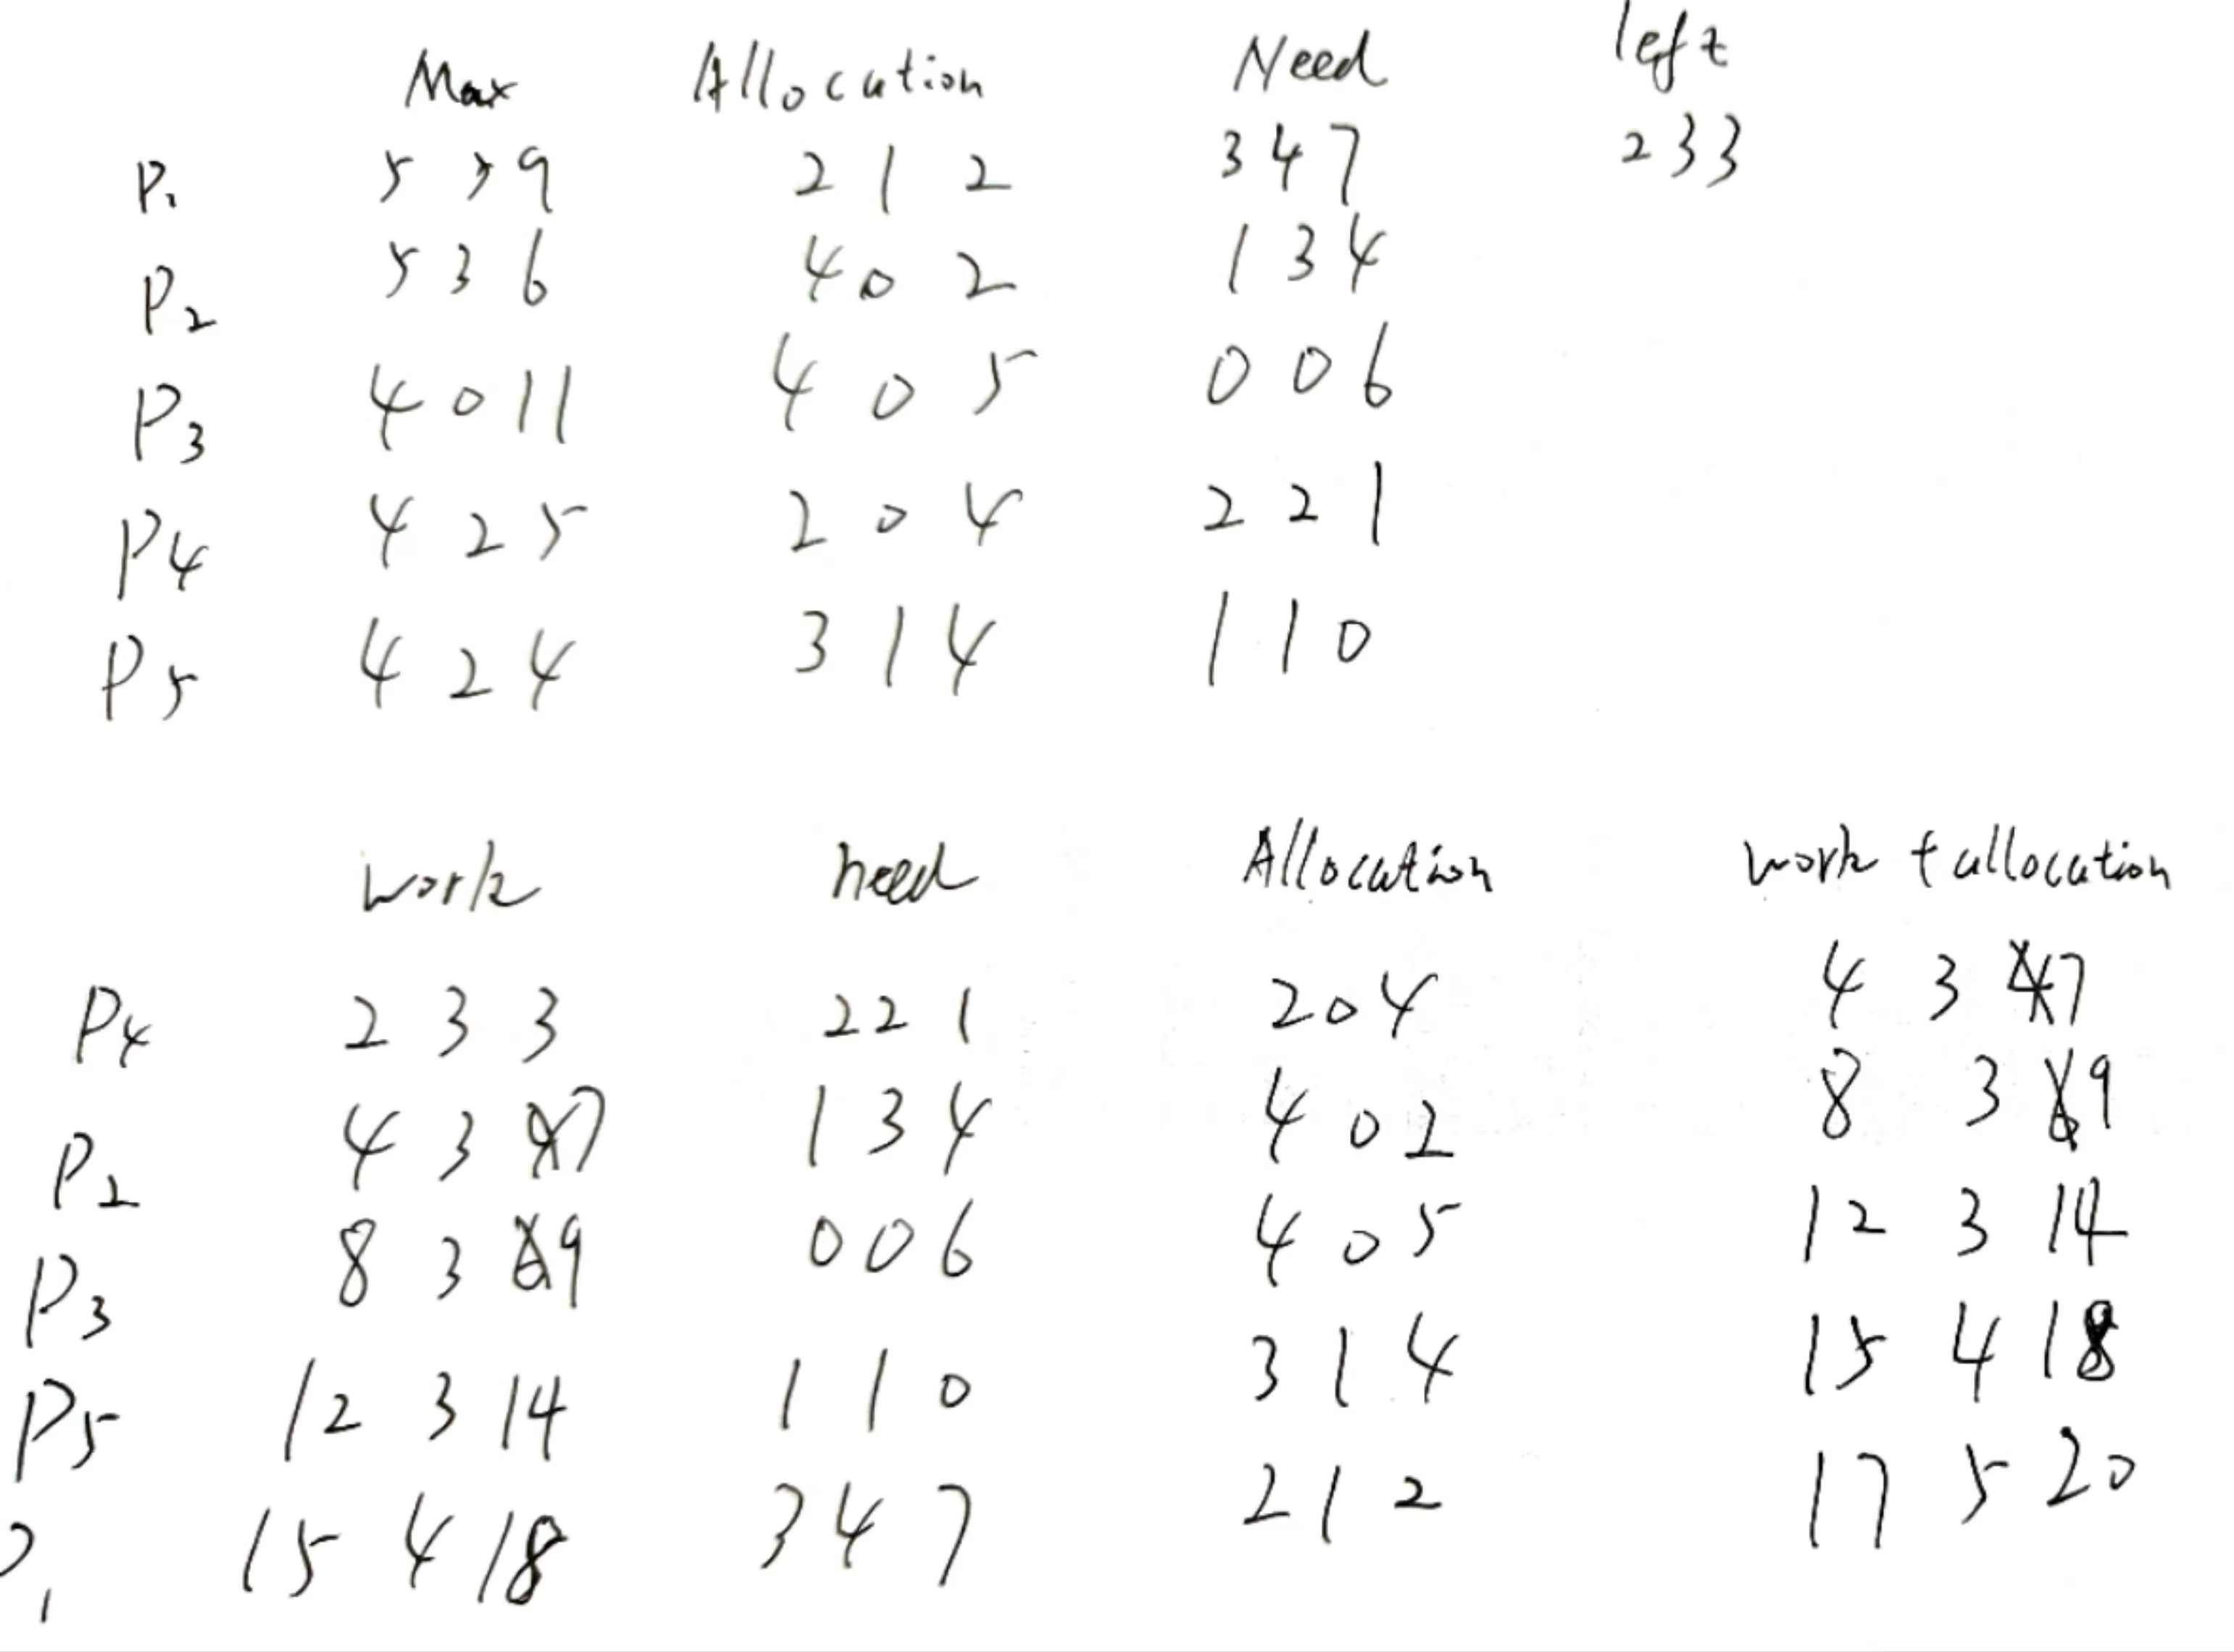 Max Allocation Need left
P1 5 5 9 2 1 2 3 4 7 2 3 3
P2 5 3 6 4 0 2 1 3 4
P3 4 0 11 4 0 5 0 0 6
P4 4 2 5 2 0 4 2 2 1
P5 4 2 4 3 1 4 1 1 0
work need Allocation work + allocation
P4 2 3 3 2 2 1 2 0 4 4 3 7
P2 4 3 7 1 3 4 4 0 2 8 3 9
P3 8 3 9 0 0 6 4 0 5 12 3 14
P5 12 3 14 1 1 0 3 1 4 15 4 18
P1 15 4 18 3 4 7 2 1 2 17 5 20